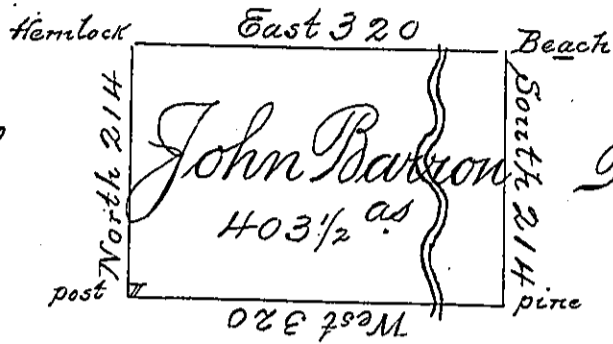 Hemlock East 320 Beach
North 214
John Barron
403 1/2 as
South 214
post
pine
West 320